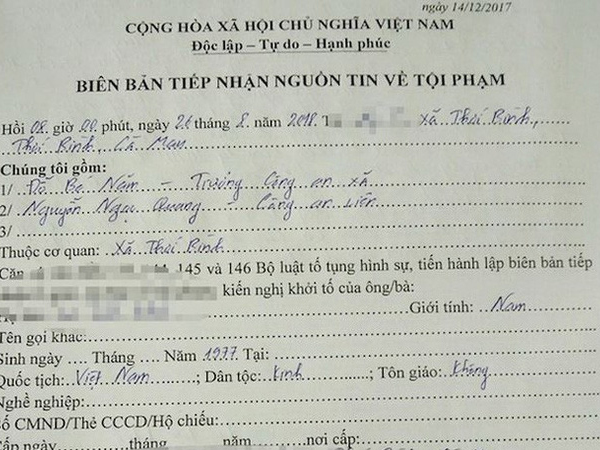 ngày 14/12/2017
CỘNG HÒA XÃ HỘI CHỦ NGHĨA VIỆT NAM
Độc lập – Tự do – Hạnh phúc
BIÊN BẢN TIẾP NHẬN NGUỒN TIN VỀ TỘI PHẠM
Hồi 08 giờ 00 phút, ngày 26 tháng 8 năm 2018 xã Thới Bình,
Thới Bình, Cà Mau
Chúng tôi gồm:
1/ Đỗ Bé Năm – Trưởng Công an xã
2/ Nguyễn Ngọc Quang – Công an viên
3/
Thuộc cơ quan: Xã Thới Bình
Căn 145 và 146 Bộ luật tố tụng hình sự, tiến hành lập biên bản tiếp
kiến nghị khởi tố của ông/bà:
Giới tính: Nam
Tên gọi khác:
Sinh ngày .... Tháng .... Năm 1977 Tại:
Quốc tịch: Việt Nam; Dân tộc: Kinh; Tôn giáo: Không
Nghề nghiệp:
Số CMND/Thẻ CCCD/Hộ chiếu:
Cấp ngày tháng năm nơi cấp: